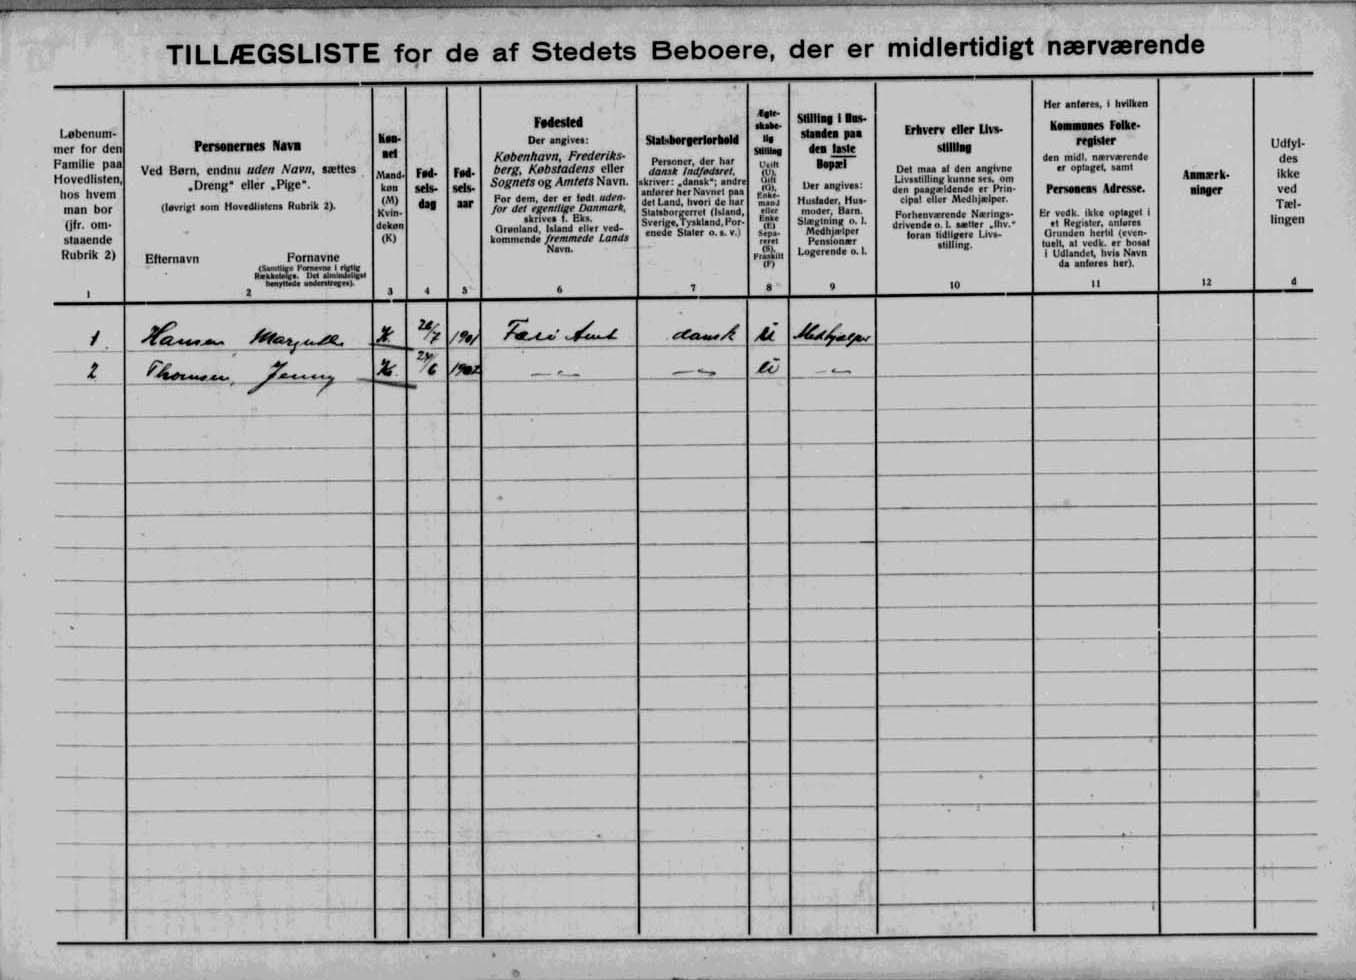 TILLÆGSLISTE for de af Stedets Beboere, der er midlertidigt nærværende
Løbenum-
mer for den
Familie paa
Hovedlisten,
hos hvem
man bor
(jfr. om-
staaende
Rubrik 2)
1
Personernes Navn
Ved Børn, endnu uden Navn, sættes
„Dreng“ eller „Pige“.
(Iøvrigt som Hovedlistens Rubrik 2).
Efternavn Fornavne
(Samtlige Fornavne i rigtig
Rækkefølge. Det almindeligst
benyttede understreges).
2
Køn-
net
Mand-
køn
(M)
Kvin-
dekøn
(K)
3
Fød-
sels-
dag
4
Fød-
sels-
aar
5
Fødested
Der angives:
København, Frederiks-
berg, Købstadens eller
Sognets og Amtets Navn.
For dem, der er født uden-
for det egentlige Danmark,
skrives f. Eks.
Grønland, Island eller ved-
kommende fremmede Lands
Navn.
6
Statsborgerforhold
Personer, der har
dansk Indfødsret,
skriver: „dansk“; andre
anfører her Navnet paa
det Land, hvori de har
Statsborgerret (Island,
Sverige, Tyskland, For-
enede Stater o. s. v.)
7
Ægte-
skabe-
lig
Stilling
Ugift
(U),
Gift
(G),
Enke-
mand
eller
Enke
(E)
Sepa-
reret
(S),
Fraskilt
(F)
8
Stilling i Hus-
standen paa
den faste
Bopæl
Der angives:
Husfader, Hus-
moder, Barn,
Slægtning o. l.
Medhjælper
Pensionær
Logerende o. l.
9
Erhverv eller Livs-
stilling
Det maa af den angivne
Livsstilling kunne ses, om
den paagældende er Prin-
cipal eller Medhjælper.
Forhenværende Nærings-
drivende o. l. sætter „fhv.“
foran tidligere Livs-
stilling.
10
Her anføres, i hvilken
Kommunes Folke-
register
den midl. nærværende
er optaget, samt
Personens Adresse.
Er vedk. ikke optaget i
et Register, anføres
Grunden hertil (even-
tuelt, at vedk. er bosat
i Udlandet, hvis Navn
da anføres her).
11
Anmærk-
ninger
12
Udfyl-
des
ikke
ved
Tæl-
lingen
d
1 Hansen K. 1901 Amt dansk U Medhjælper
2 Thomsen, Jenny K. 24/6 1902 — „ — — „ — U — „ —